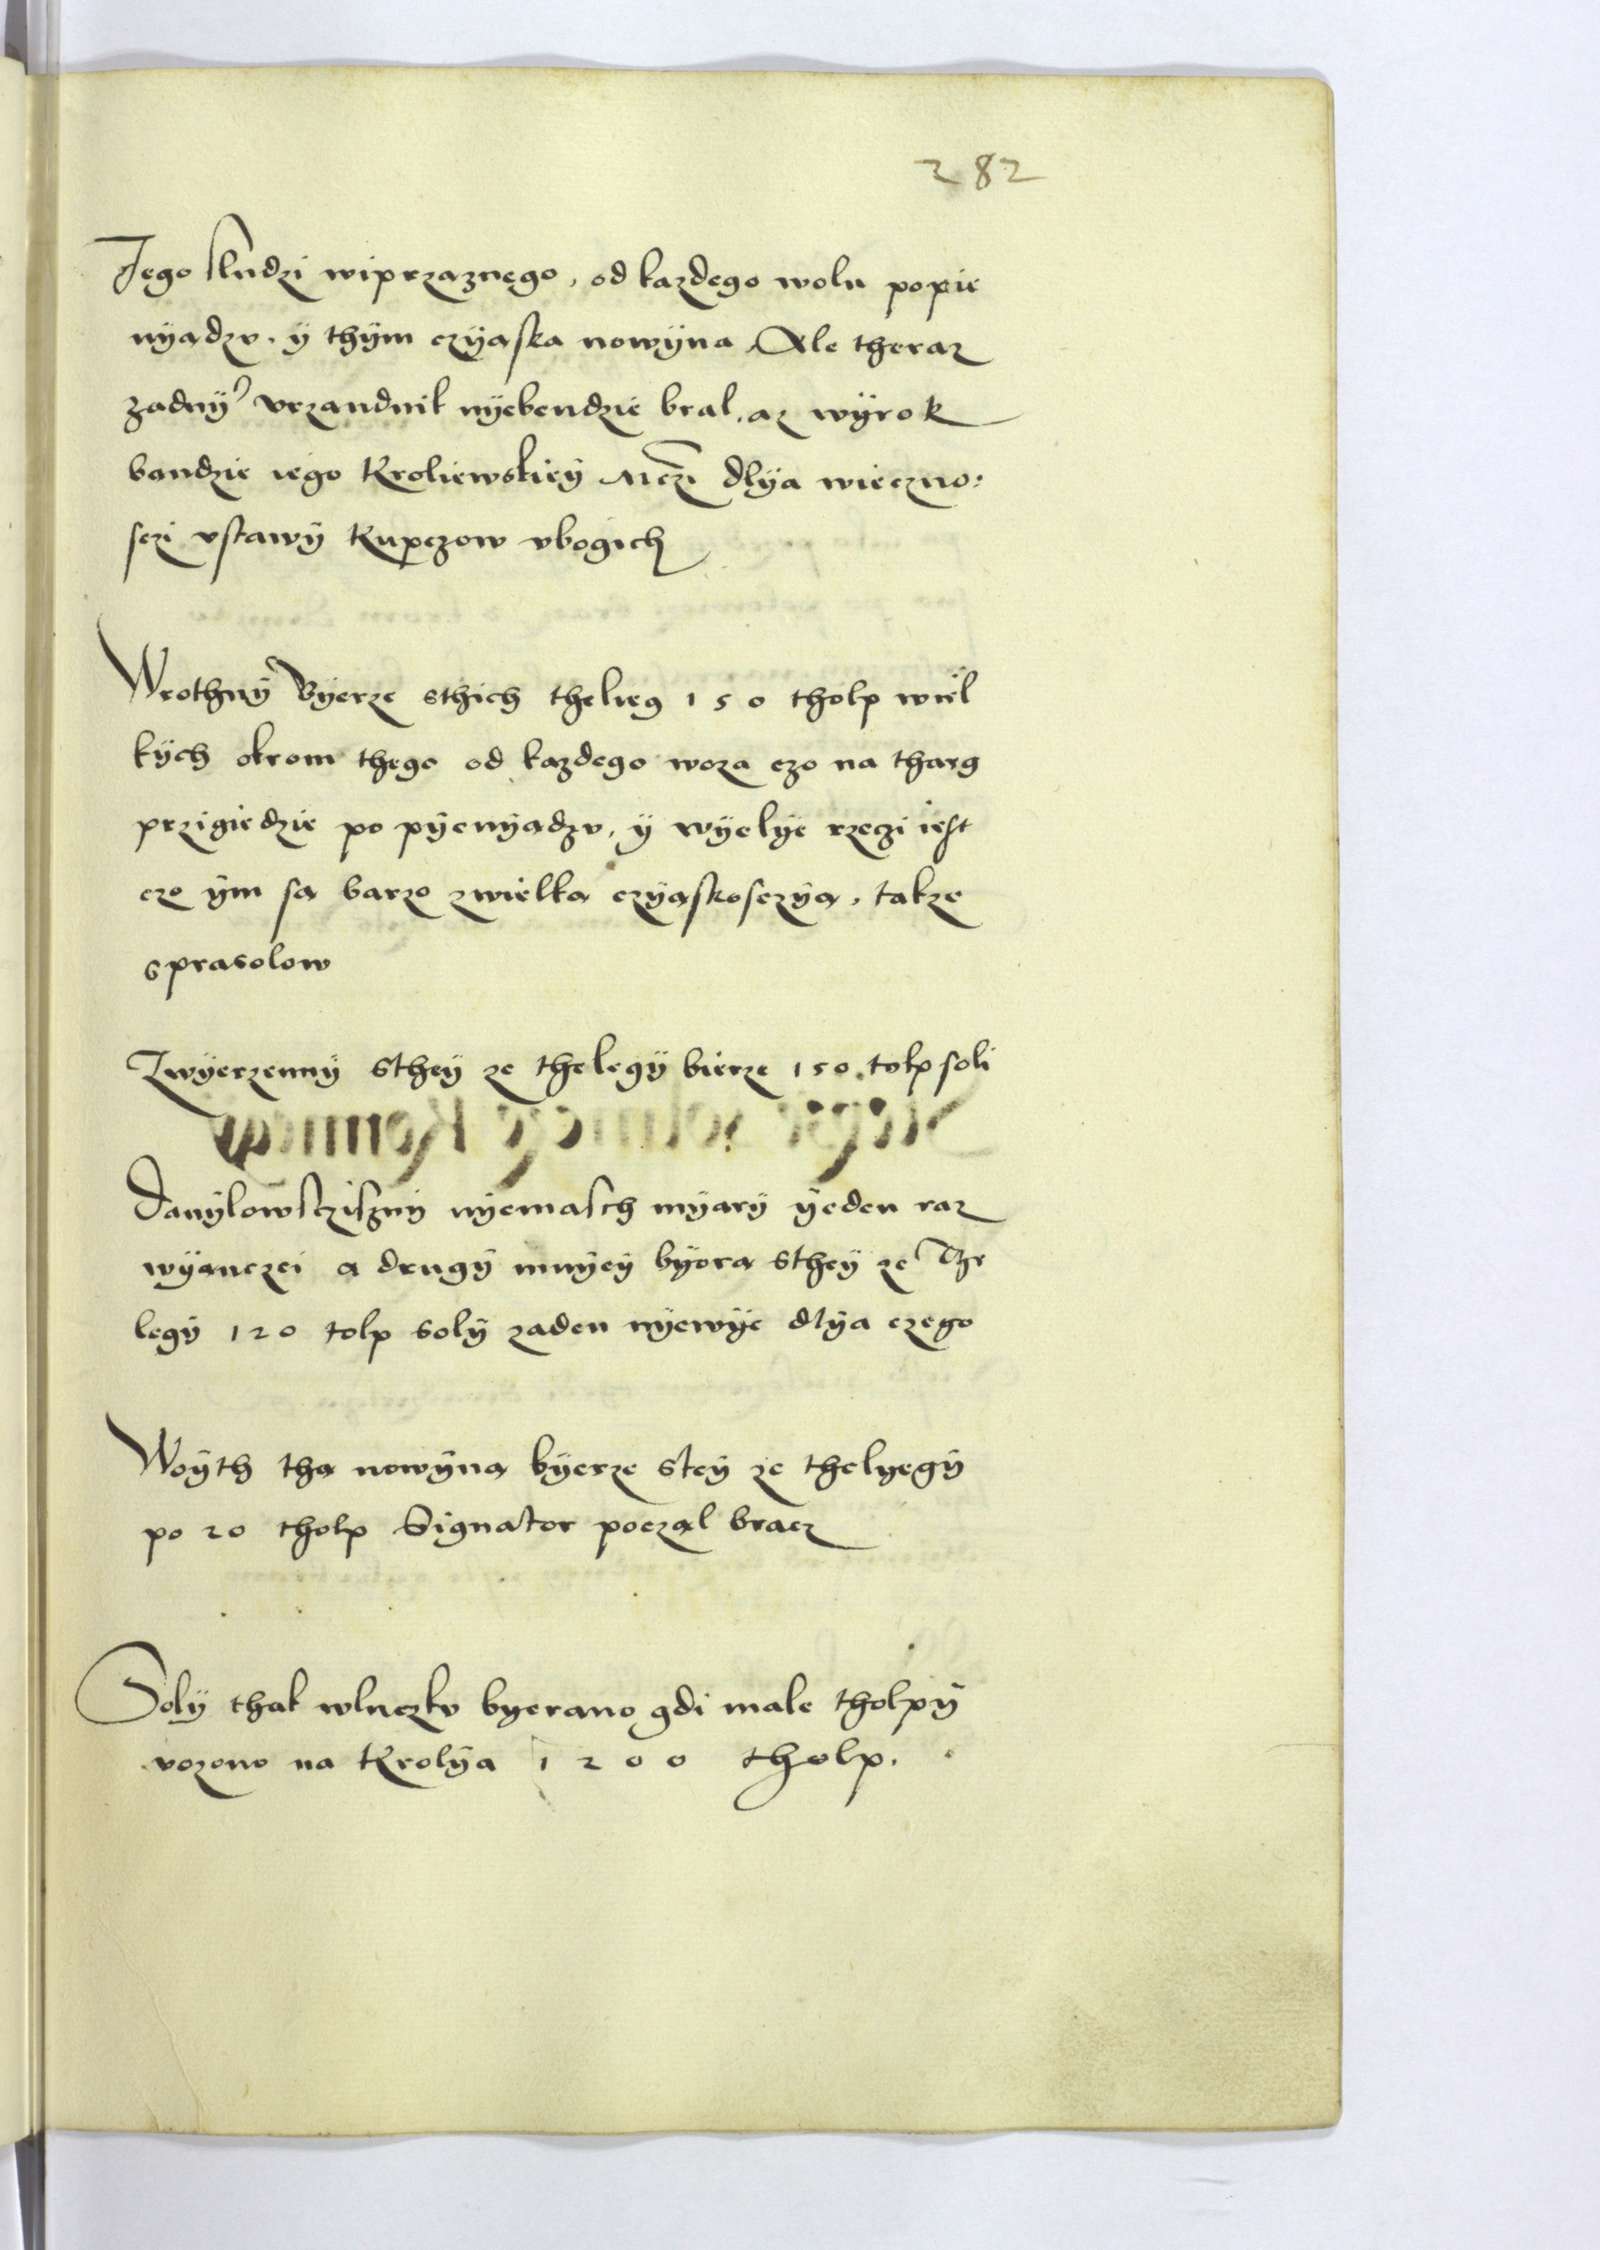 282
Jego sludzi wiprzaznego, od kazdego wolu popie
nÿadzv. ÿ thÿm czÿaska nowÿna Ale theraz
zadnÿ vrzandnik nÿebendzie bral, az wÿrok
bandzie iego Kroliewskieÿ Mczi dlÿa wieczno:
sczi vstawÿ Kupczow vbogich
Wrothnÿ Byerze sthich thelieg 150 tholp wiel
kÿch okrom thego od kazdego woza czo na tharg
przigiedzie po pÿenÿadzv, ÿ wÿelÿe rzeczi iest
czo ÿm sa barzo zwielka czÿaskosczÿa, takze
sprasolow
Zwÿerzennÿ stheÿ ze thelegÿ bierze 150 tolp soli
Danÿlowscziznÿ nÿemasch mÿarÿ ÿeden raz
wÿanczei a drugÿ mnÿeÿ bÿora stheÿ ze The
legÿ 120 tolp solÿ zaden nÿewÿe dlÿa czego
Woÿth tha nowÿna bÿerze steÿ ze thelyegÿ
po 20 tholp Signator poczal bracz
Solÿ thak wluczkv byerano gdi male tholpÿ
vozono na Krolÿa 1200 tholp.